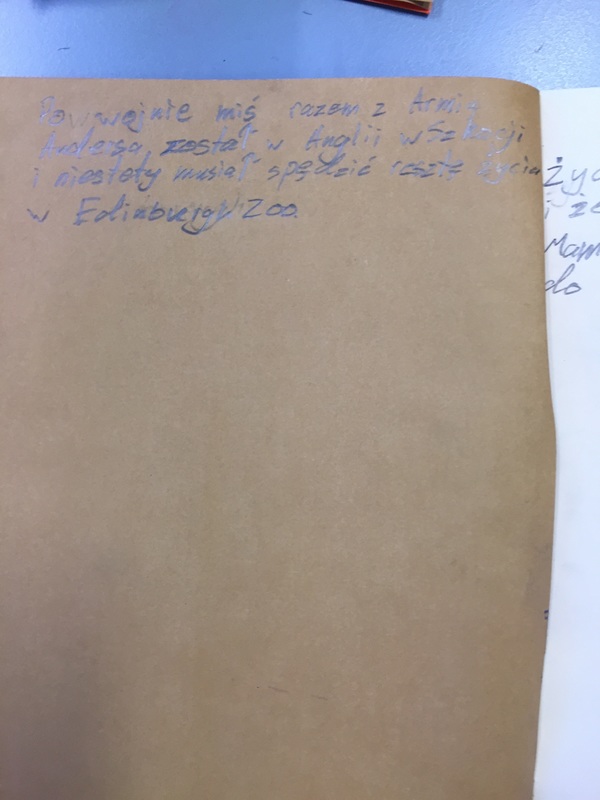 Po wojnie miś razem z Armią
Andersa został w Anglii w Szkocji
i niestety musiał spędzić resztę życia
w Edinburgu Zoo.
życ
i że
Mam
do